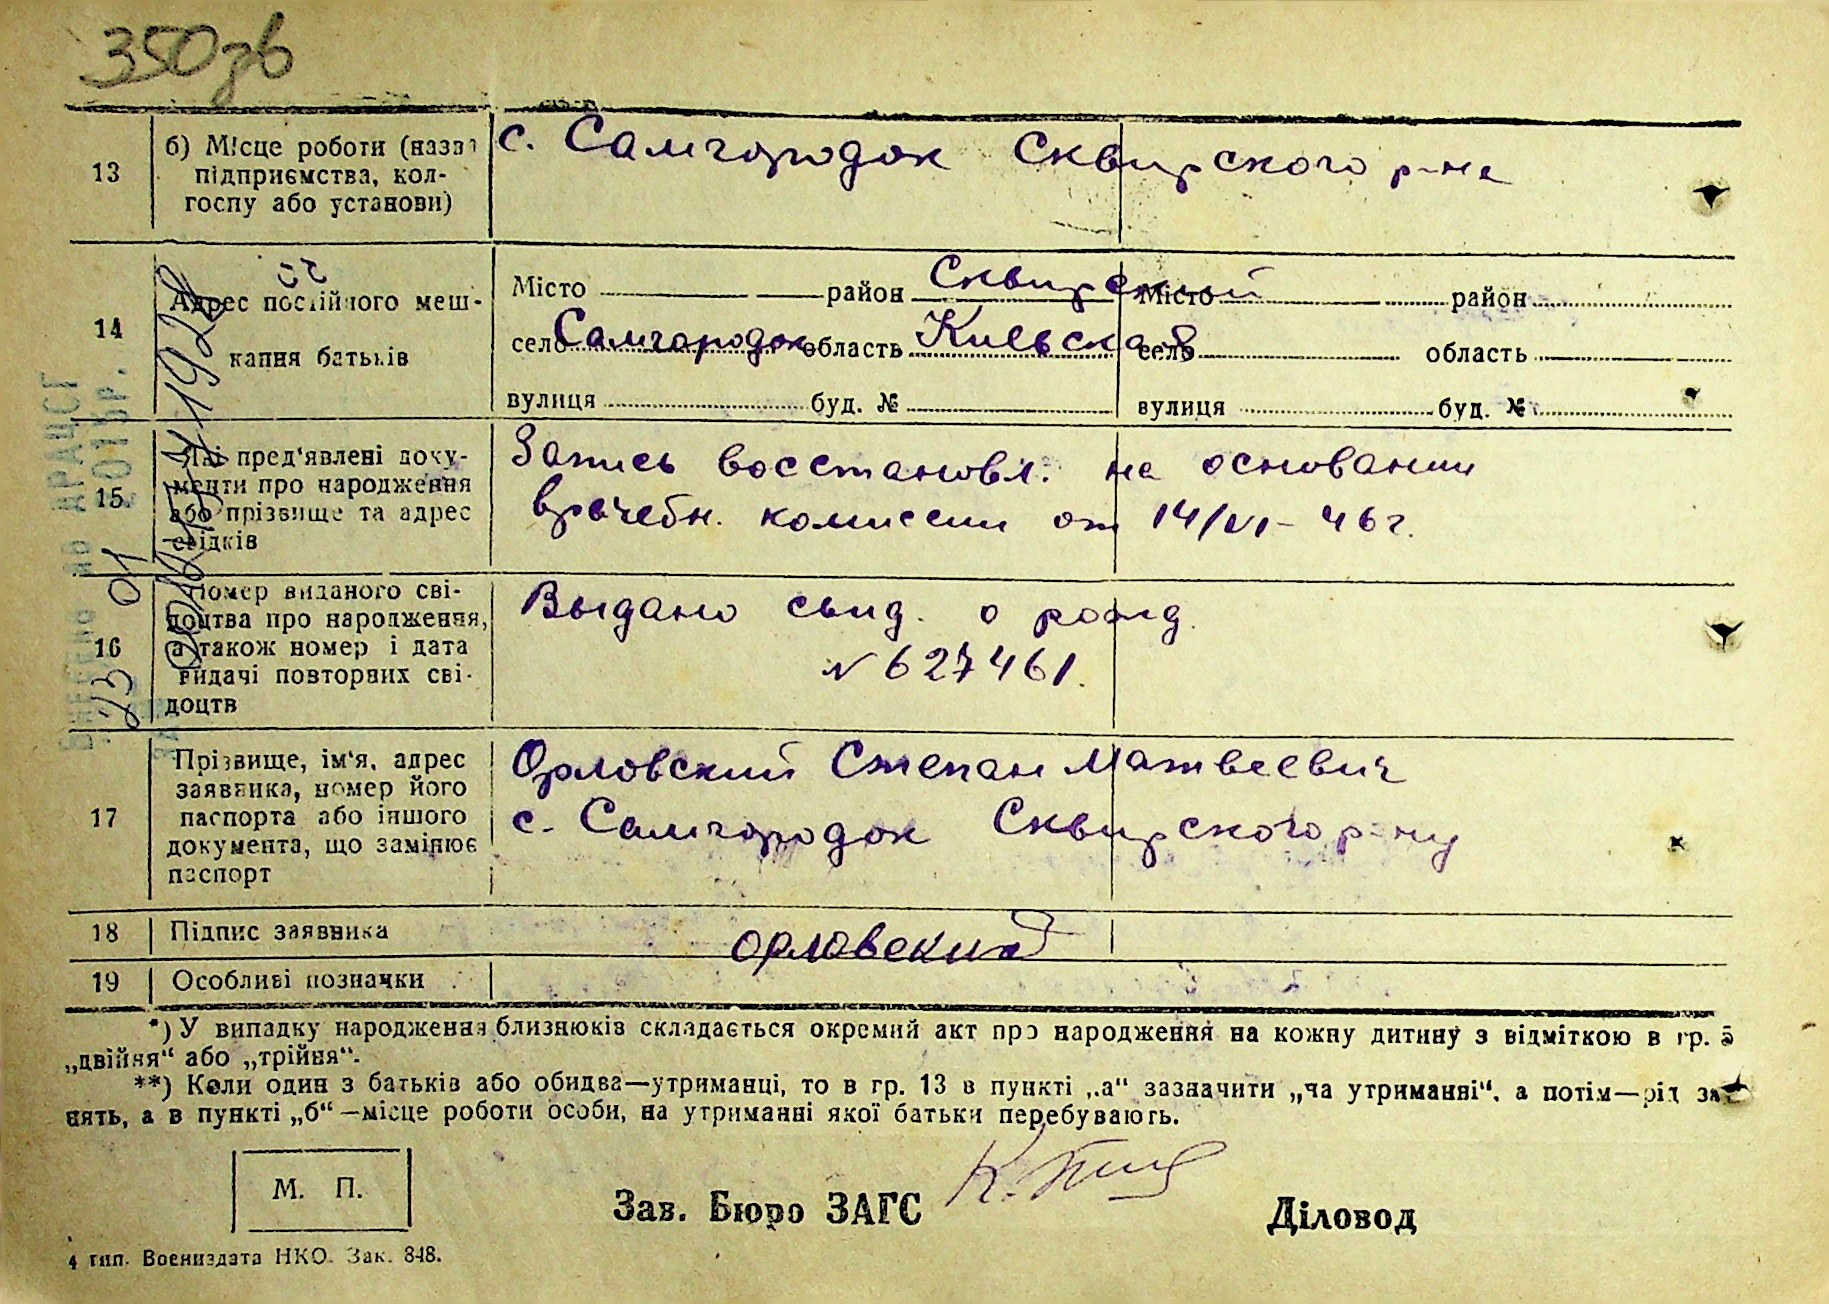 350зв
13
б) Місце роботи (назва
підприємства, кол-
госпу або установи)
с. Самгородок Сквирского р-на
14
Адрес постійного меш-
кання батьків
Місто район Сквирский
село Самгородок область Киевская
вулиця буд. №
Місто район
село область
вулиця буд. №
15
Які пред'явлені доку-
менти про народження
або прізвище та адрес
свідків
Запись восстановл. на основании
врачебн. комиссии от 14/VI-46г.
16
Номер виданого сві-
доцтва про народження,
а також номер і дата
видачі повторних сві-
доцтв
Выдано свид. о рожд.
№ 627461.
17
Прізвище, ім'я, адрес
заявника, номер його
паспорта або іншого
документа, що замінює
паспорт
Орловский Степан Матвеевич
с. Самгородок Сквирского р-ну
18
Підпис заявника
Орловский
19
Особливі позначки
*) У випадку народження близнюків складається окремий акт про народження на кожну дитину з відміткою в гр. 5
„двійня“ або „трійня“.
**) Коли один з батьків або обидва—утриманці, то в гр. 13 в пункті „а“ зазначити „на утриманні“, а потім—рід за-
нять, а в пункті „б“—місце роботи особи, на утриманні якої батьки перебувають.
М. П.
Зав. Бюро ЗАГС
Діловод
4 тип. Воениздата НКО. Зак. 848.